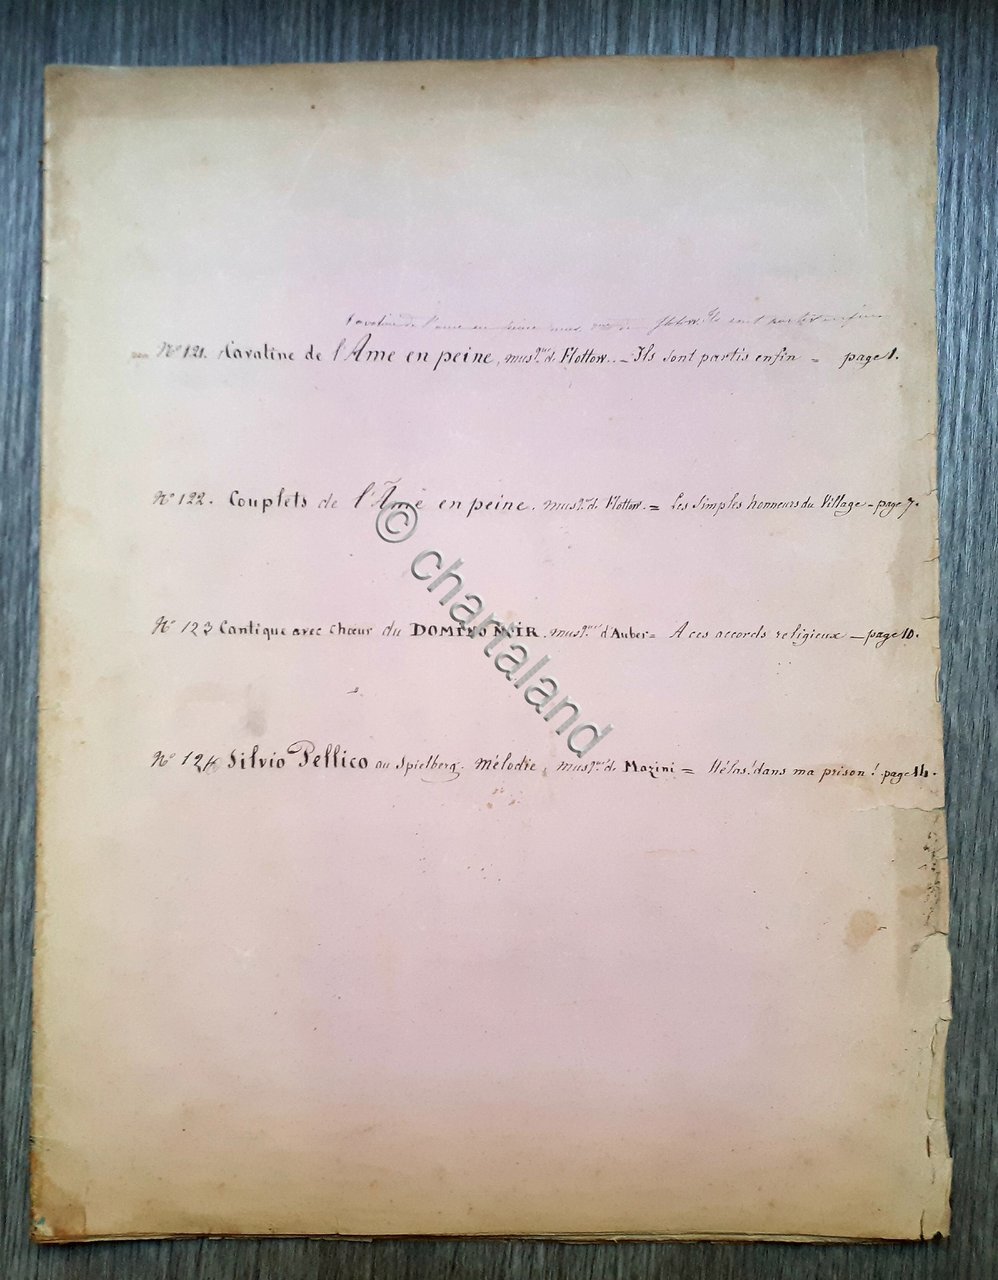 Cavatine de l'ame en peine mus. que de flotow Ils sont partis enfin
No 121. Cavatine de l'Ame en peine, mus.que de Flottow. _ Ils sont partis enfin = page 1.
No 122. Couplets de l'Ame en peine. mus.que de Flottow. = Les simples honneurs du Village - page 7.
No 123 Cantique avec chœur du DOMINO NOIR. mus.que d'Auber = A ces accords religieux _ page 10.
No 124 Silvio Pellico au Spielberg. Mélodie, mus.que de Mazini = Hélas! dans ma prison! page 14.
© chartaland